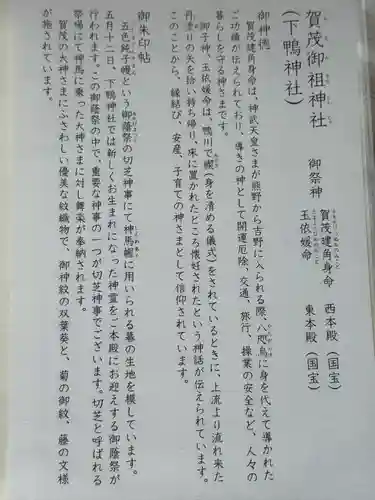 賀茂御祖神社
（下鴨神社）
御祭神
賀茂建角身命 西本殿（国宝）
玉依媛命 東本殿（国宝）
御神徳
賀茂建角身命は、神武天皇さまが熊野から吉野に入られる際、八咫烏に身を代えて導かれた
ご功績が伝えられており、導きの神として開運厄除、交通、旅行、操業の安全など、人々の
暮らしを守る神さまです。
御子神、玉依媛命は、鴨川で禊（身を清める儀式）をされているときに、上流より流れ来た
丹まりの矢を拾い持ち帰り、床に置かれたところ懐妊されたという神話が伝えられます。
このことから、縁結び、安産、子育ての神さまとして信仰されています。
御朱印帖
五色純子幄という御蔭祭の切芝神事にて神馬幄に用いられる幕の生地を模しています。
五月十二日、下鴨神社では新しくお生まれになった神霊をご本殿にお迎えする御蔭祭が
行われます。この御蔭祭の中で、重要な神事の一つが切芝神事でございます。切芝と呼ばれる
祭場にて神馬に乗った大神さまに対し舞楽が奉納されます。
賀茂の大神さまにふさわしい優美な紋織物で、御神紋の双葉葵と、菊の御紋、藤の文様
が施されています。